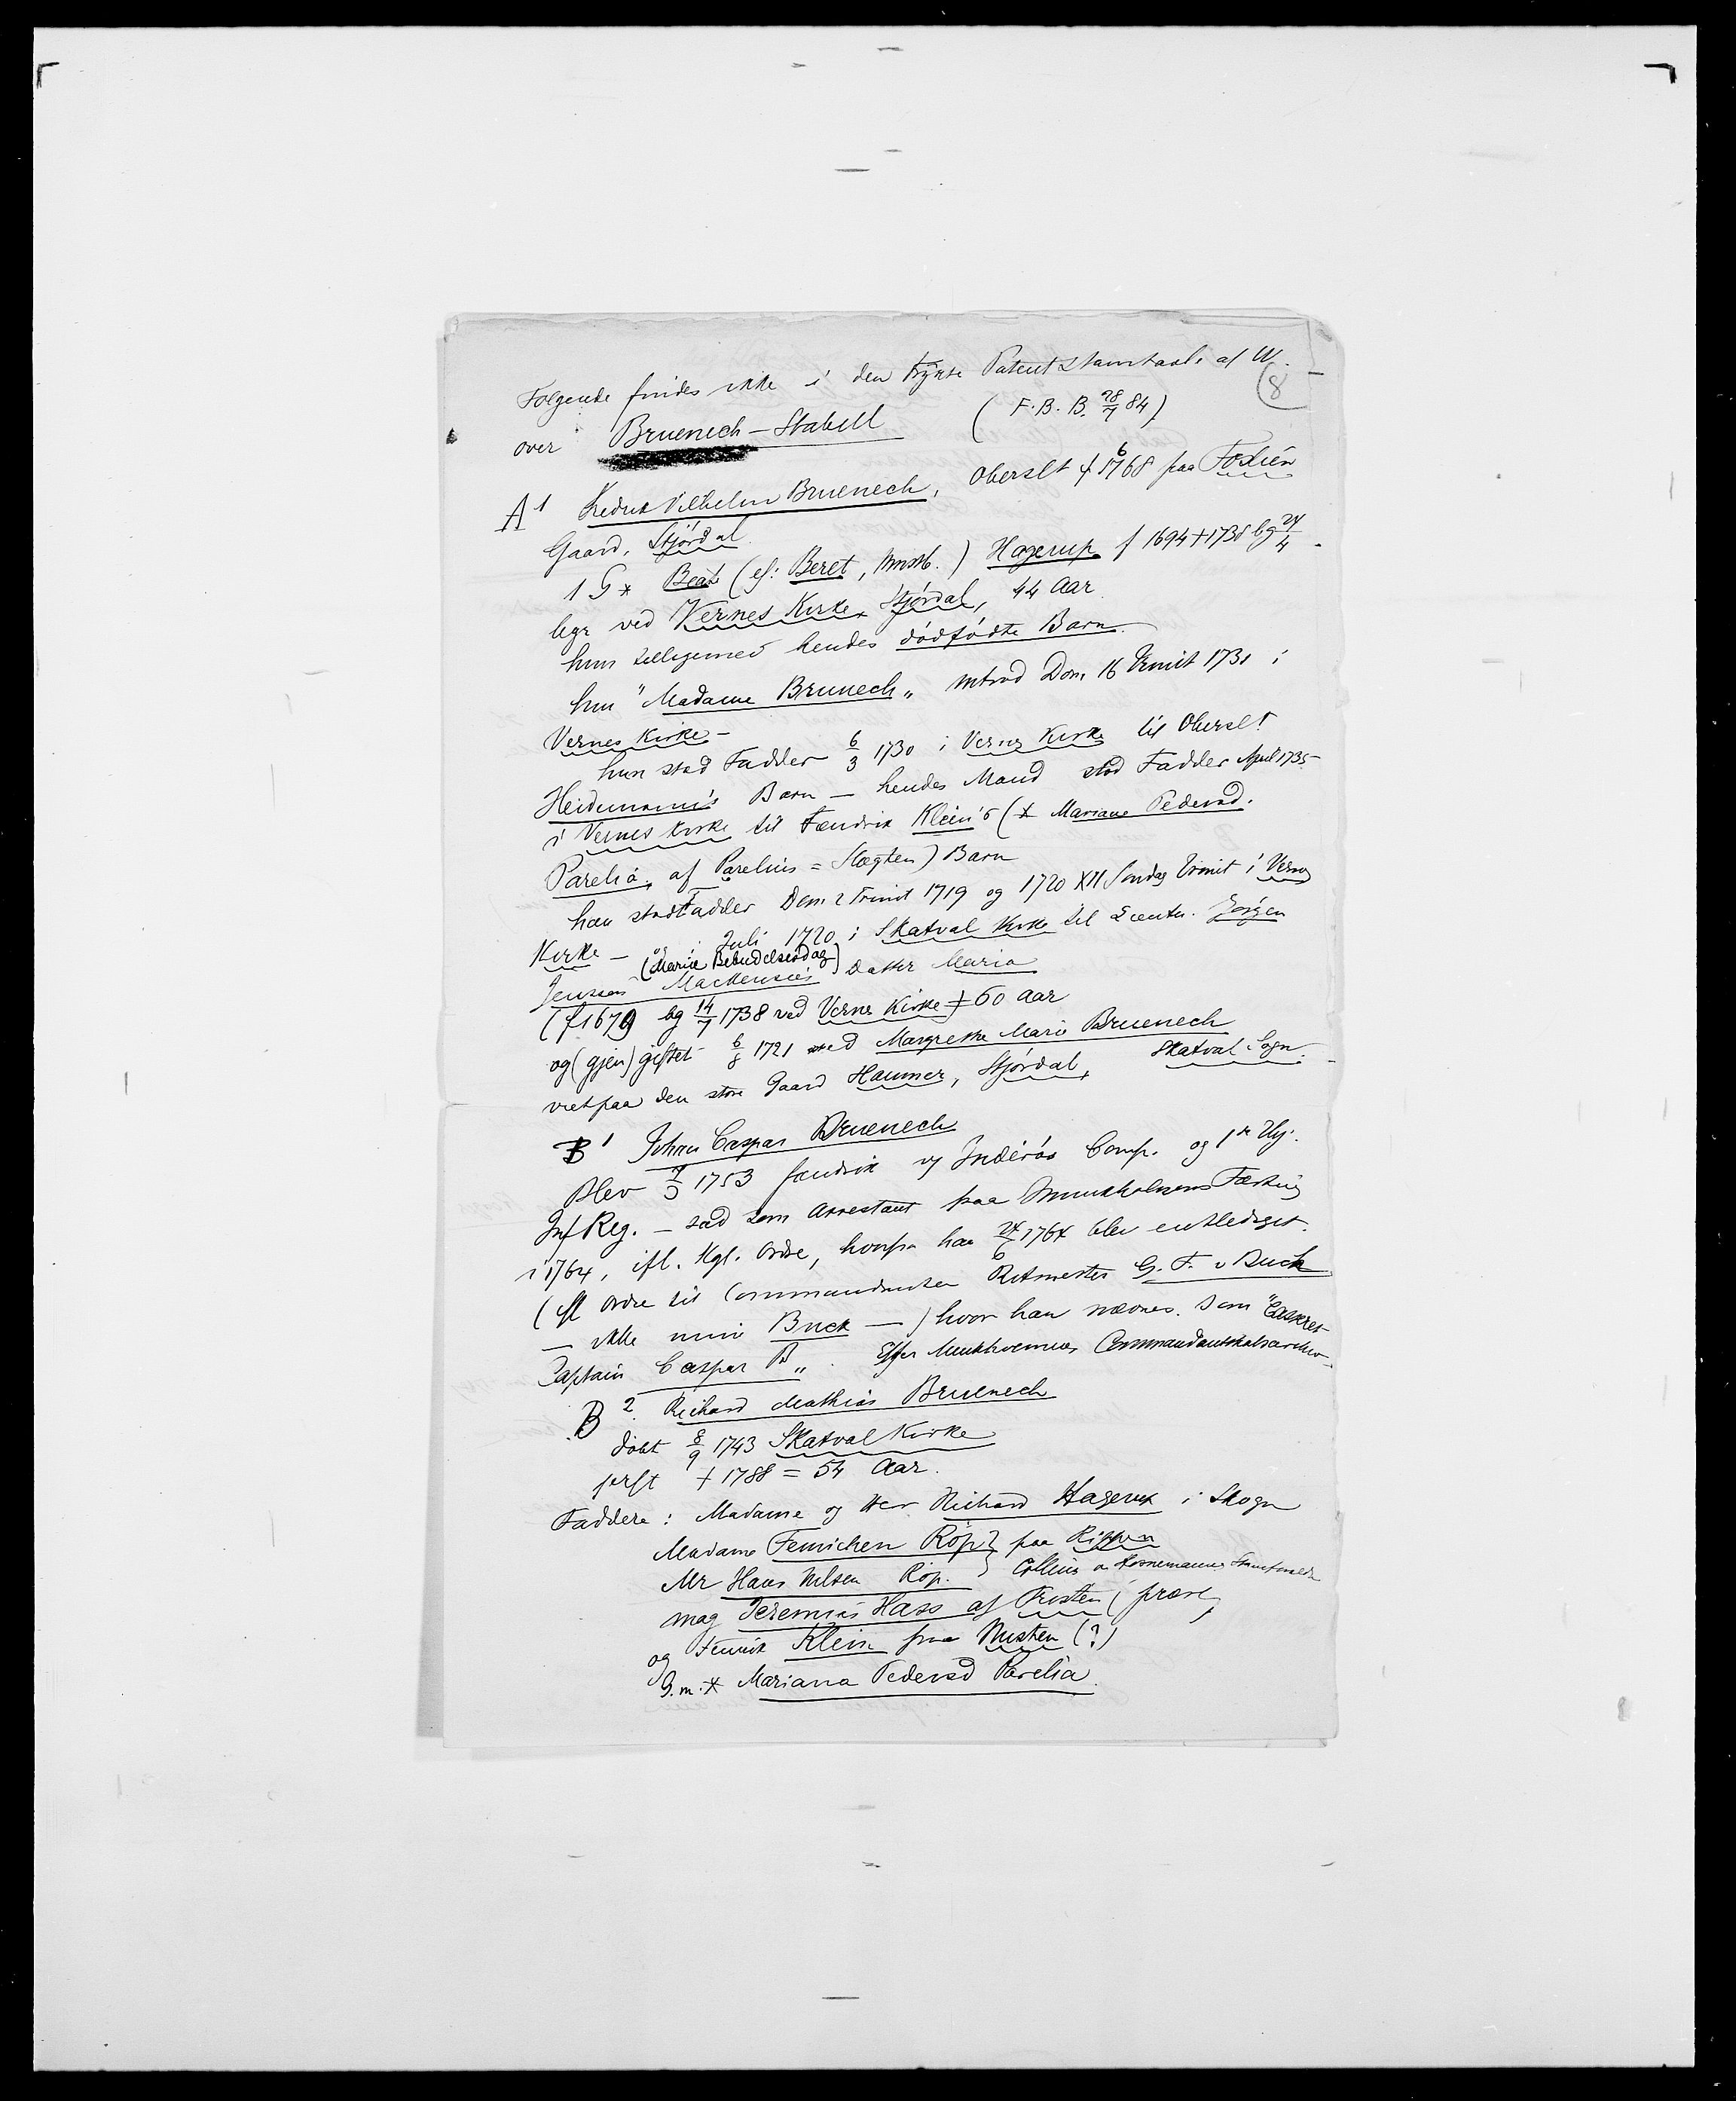 Følgende findes ikke i den trykte Patent Stamtavle af W.
8
over Bruenech – Stabell (F. B. B. 28/7 84)
A 1 Fredrik Vilhelm Bruenech, Oberslt † 1768 paa
Gaard, Stjørdal.
1 G * Beate (el: Beret, ) Hagerup f 1694 † 1738 bg 24/4
begr ved Vernes Kirke, Stjørdal, 44 Aar
hun tilligemed hendes dødfødte Barn.
hun "Madame Bruenech" introd Dom. 16 Trinit 1731 i
Vernes Kirke –
hun stod Fadder 6/3 1730 i Vernes Kirke til Oberslt
Heidemann's Barn – hendes Mand stod Fadder April 1735
i Vernes Kirke til Fændrik Klein's (* Mariane Pedersd.
Parelia, af Parelius = Slægten) Barn
han stod Fadder Dom. 2 Trinit 1719 og 1720 XII Søndag Trinit i Vernes
Kirke – og i Juli 1720 i Skatval Kirke til Lieutn. Jørgen
(Mariæ Bebudelsesdag)
Jenssen Mackensie's Datter Maria
(f 1679 bg 14/7 1738 ved Vernes Kirke † 60 Aar
og (gjen) giftet 6/8 1721 med Margrethe Marie Bruenech
paa den store Gaard Hammer, Stjørdal, Skatval Sogn.
B 1 Johan Caspar Bruenech
Blev 1753 fændrik v Inderøs Comp. og 1ste
Inf Reg. – sad som Arrestant paa Munkholmens Fæstning
i 1764, ifl. Kgl. Ordre, hvorfra han 24/6 1764 blev entlediget.
(ifl Ordre til Commandanten Ritmester G. F. v Buck
– ikke Buck –) hvor han nævnes som
Captain Caspar B". Efter Munkholmens Commandantskabsarchiv –
B 2. Richard Mathias Bruenech
døbt 8/9 1743 Skatval Kirke
† 1788 = 54 Aar.
Faddere: Madame og Herr Richard Hagerup i Skogn
Madame Femichen Röp } paa
Mr Hans Nilsen Röp. } Collins
mag Jeremias Hass af (præst)
og Fenrik Klein fra (?)
G. m. * Mariana Pedersd Parelia.